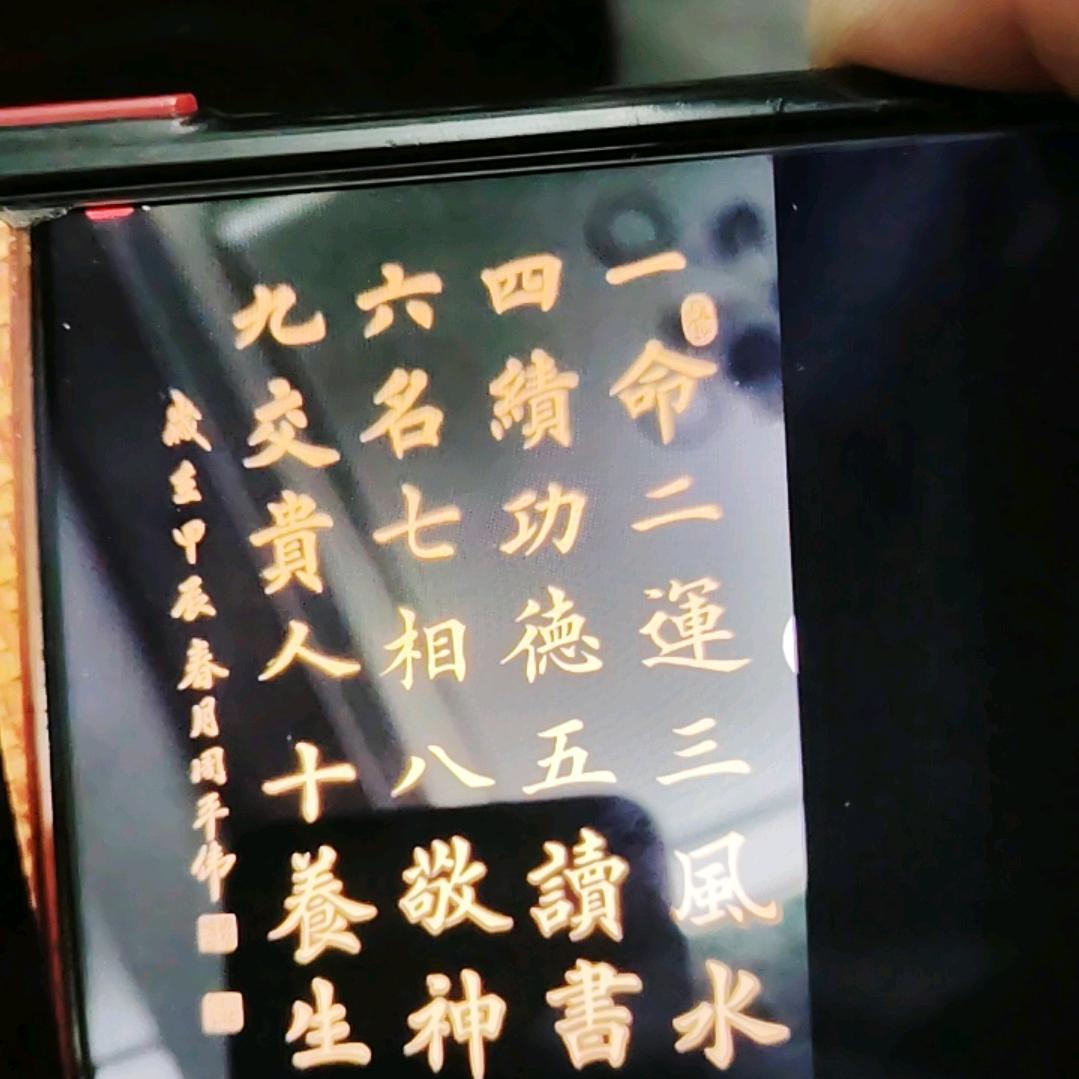 一命二運三風水
四績功德五讀書
六名七相八敬神
九交貴人十養生
歲在甲辰春月周平偉